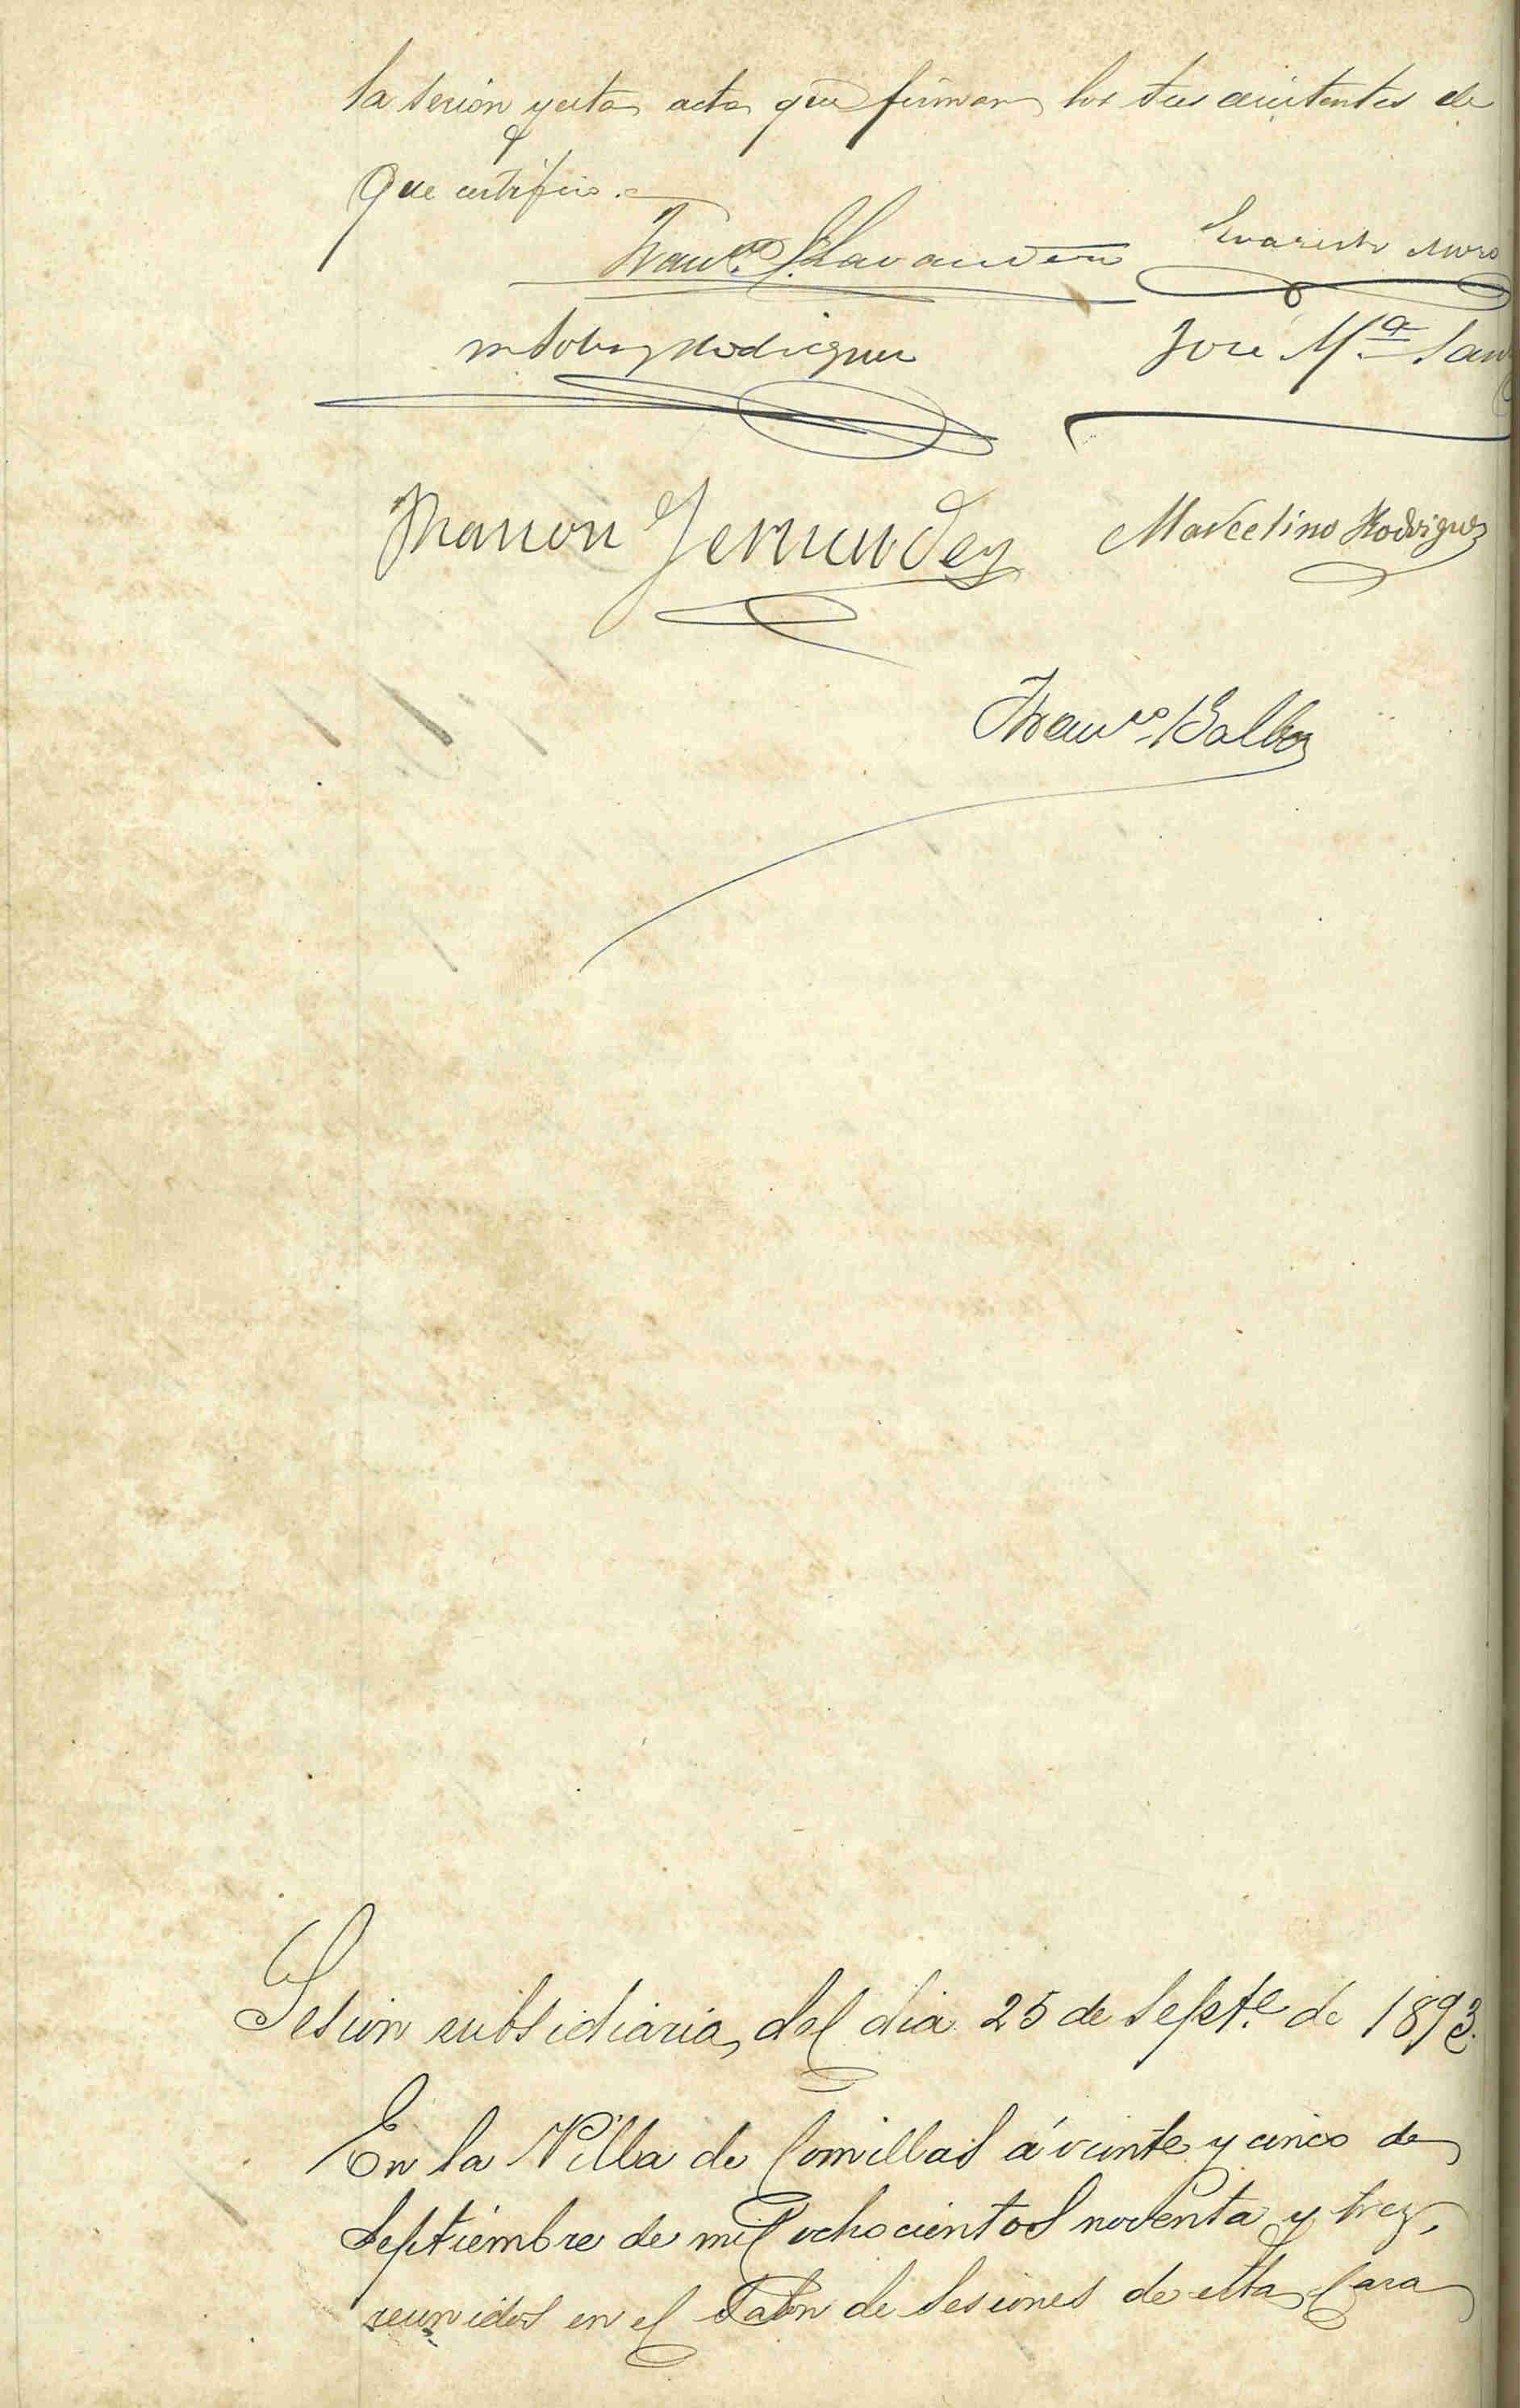 la sesion y esta acta que firman los Sres asistentes de
que certifico.
Franco S. Lavandero Evaristo Muro
Rodriguez José Ma San
Ramon Fernandez Marcelino Rodriguez
Franco Balbas
Sesion subsidiaria del dia 25 de Septe de 1893.
En la Villa de Comillas á veinte y cinco de
Septiembre de mil ochocientos noventa y trez,
reunidos en el Salon de Sesiones de esta Casa